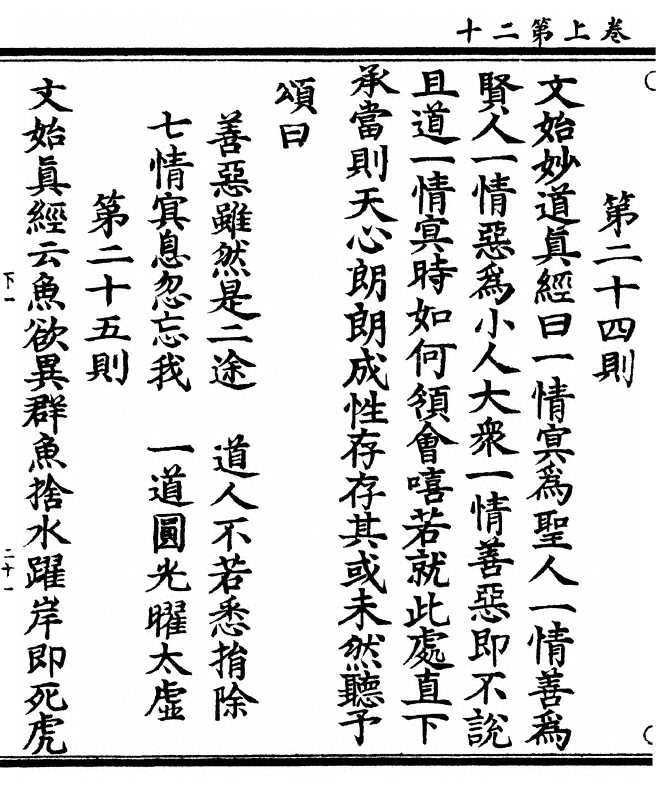 卷上第二十
第二十四則
文始妙道眞經曰一情冥爲聖人一情善爲
賢人一情惡爲小人大衆一情善惡即不說
且道一情冥時如何領會嘻若就此處直下
承當則天心朗朗成性存存其或未然聽予
頌曰
善惡雖然是二途　道人不若悉捐除
七情冥息忽忘我　一道圓光曜太虛
第二十五則
文始眞經云魚欲異群魚捨水躍岸即死虎
下一
二十一